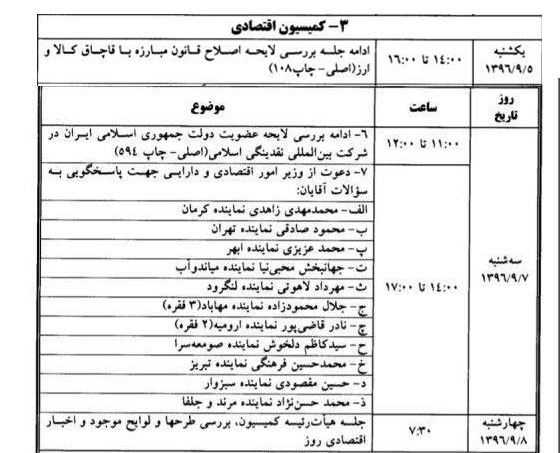 ۳- کمیسیون اقتصادی
یکشنبه
۱۳۹۶/۹/۵
۱۴:۰۰ تا ۱۶:۰۰
ادامه جلسه بررسی لایحه اصلاح قانون مبارزه با قاچاق کالا و
ارز(اصلی-چاپ۱۰۸)
روز
تاریخ
ساعت
موضوع
سه‌شنبه
۱۳۹۶/۹/۷
۱۱:۰۰ تا ۱۲:۰۰
۶- ادامه بررسی لایحه عضویت دولت جمهوری اسلامی ایران در
شرکت بین‌المللی نقدینگی اسلامی(اصلی- چاپ ۵۹٤)
۱۴:۰۰ تا ۱۷:۰۰
۷- دعوت از وزیر امور اقتصادی و دارایی جهت پاسخگویی به
سؤالات آقایان:
الف- محمدمهدی زاهدی نماینده کرمان
ب- محمود صادقی نماینده تهران
پ- محمد عزیزی نماینده ابهر
ت- جهانبخش محبی‌نیا نماینده میاندوآب
ث- مهرداد لاهوتی نماینده لنگرود
ج- جلال محمودزاده نماینده مهاباد(۳ فقره)
چ- نادر قاضی‌پور نماینده ارومیه(۲ فقره)
ح- سیدکاظم دلخوش نماینده صومعه‌سرا
خ- محمدحسین فرهنگی نماینده تبریز
د- حسین مقصودی نماینده سبزوار
ذ- محمد حسن‌نژاد نماینده مرند و جلفا
چهارشنبه
۱۳۹۶/۹/۸
۷:۳۰
جلسه هیأت‌رئیسه کمیسیون، بررسی طرحها و لوایح موجود و اخبار
اقتصادی روز